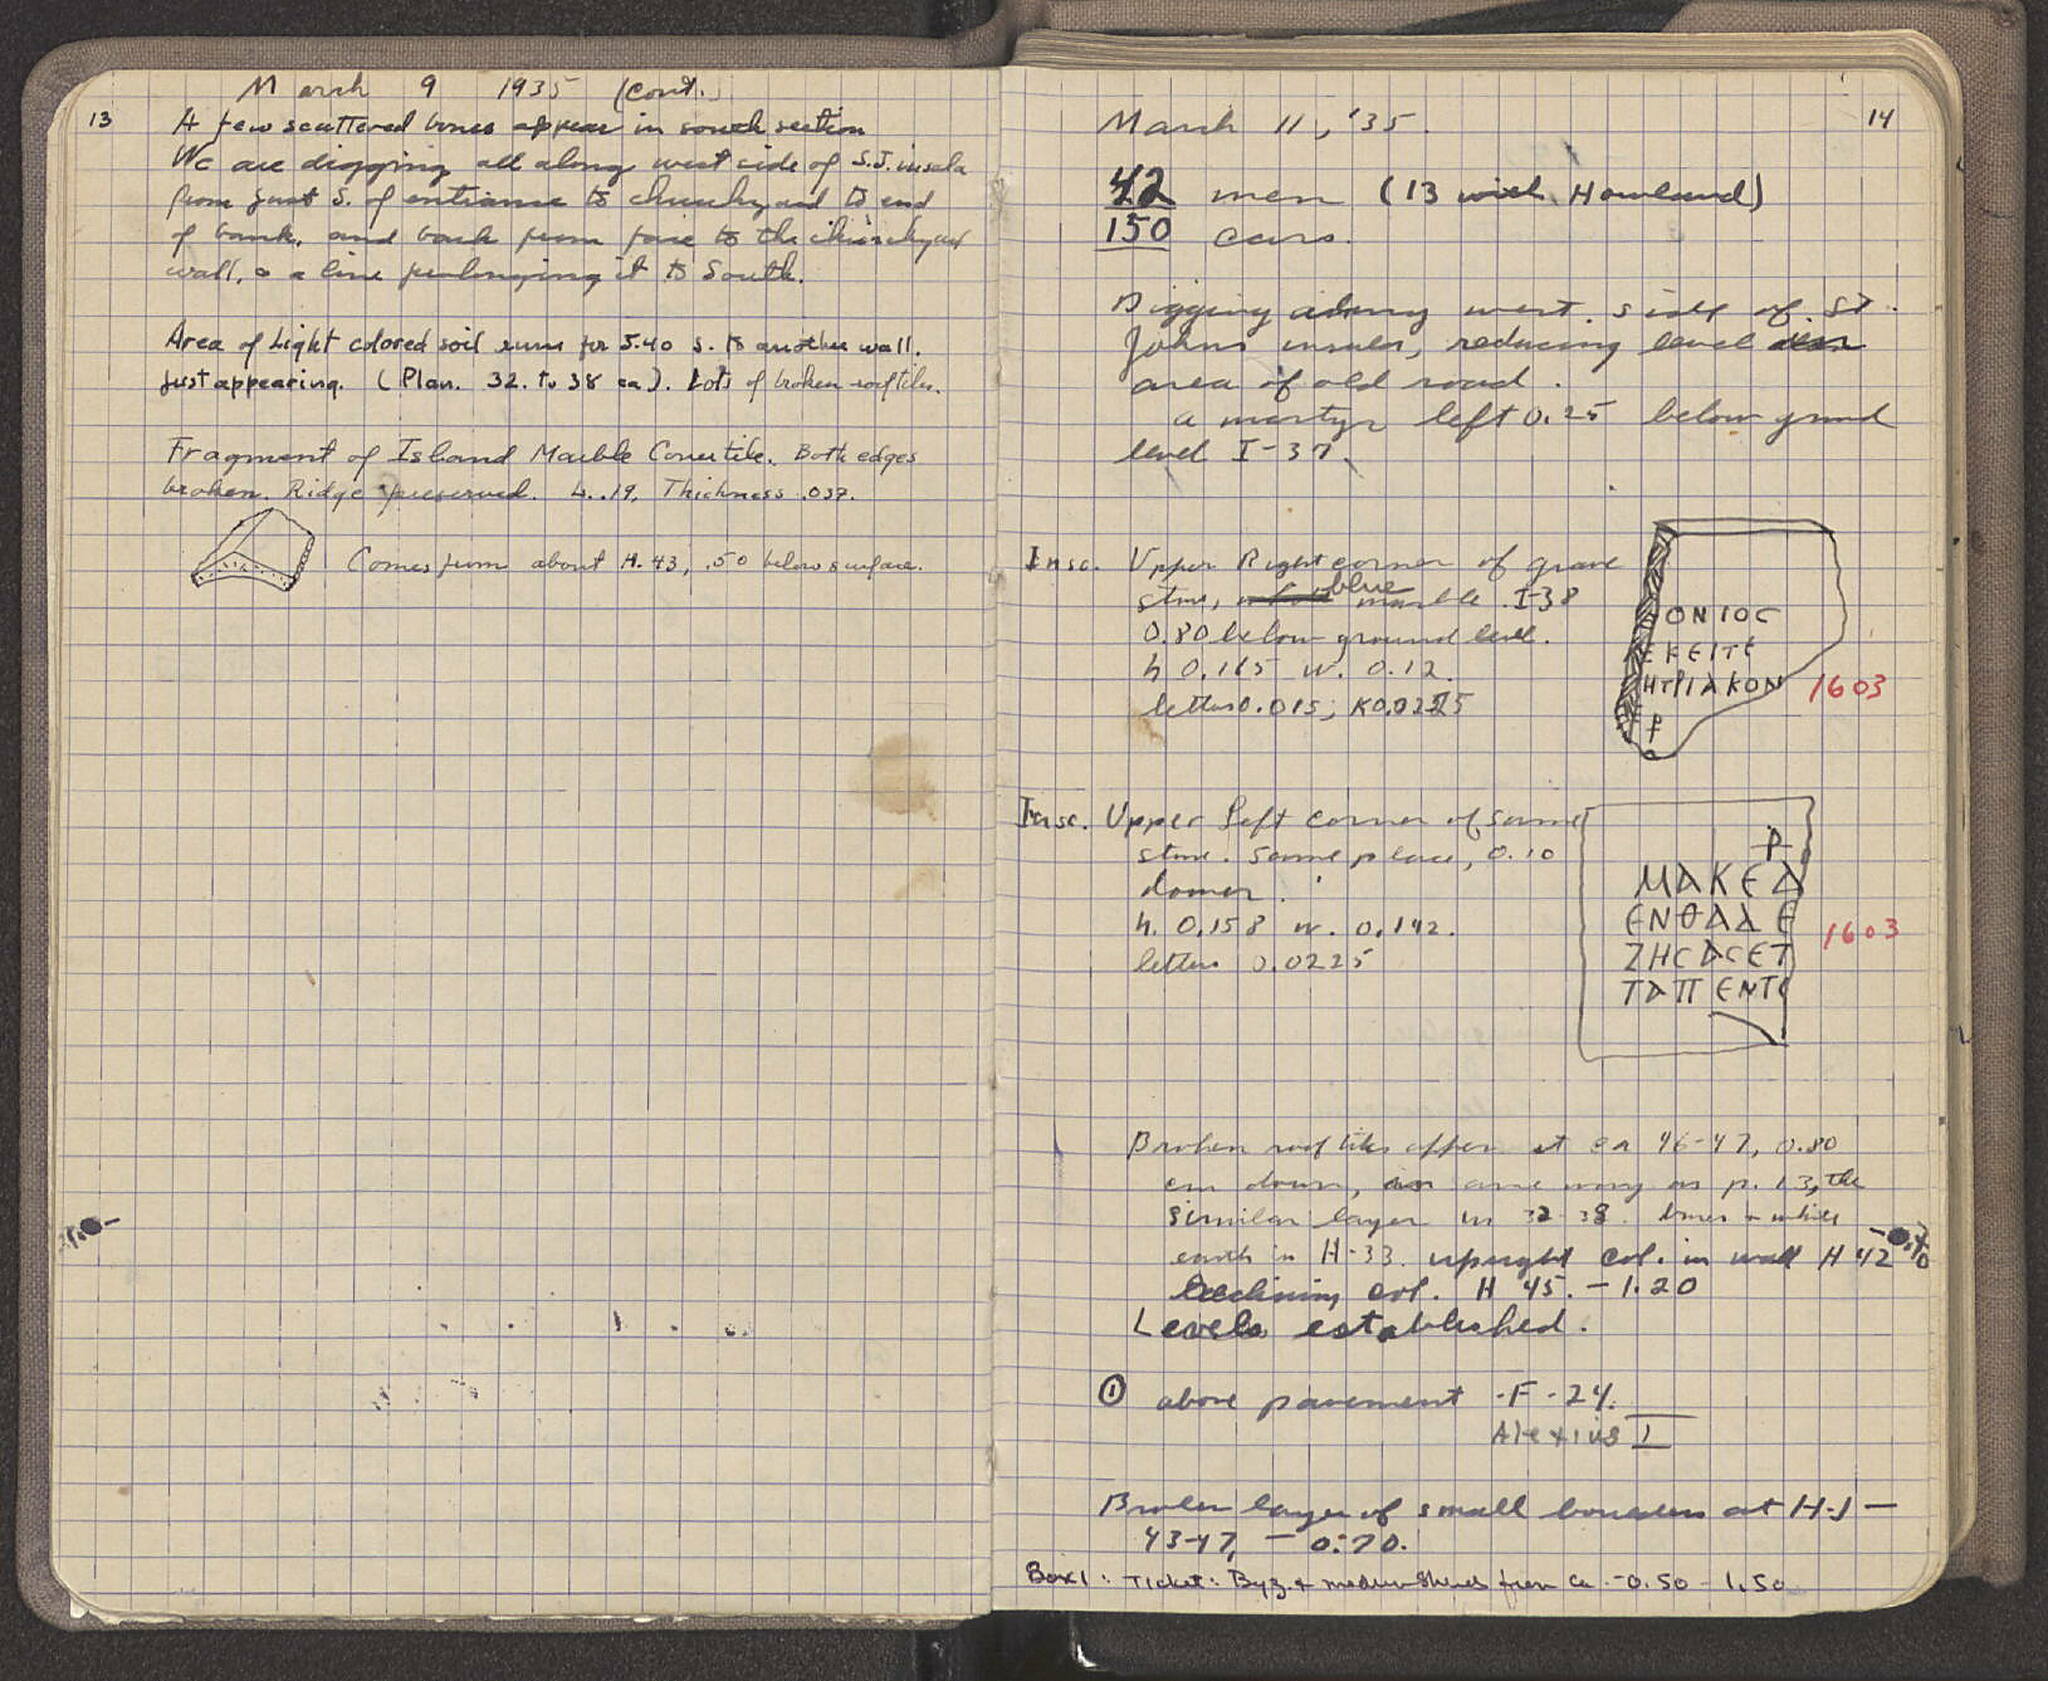 March 9 1935 (cont.)
13
A few scattered bones appear in south section
We are digging all along west side of S.J. insula
from just S. of entrance to churchyard to end
of bank, and back from face to the churchyard
wall, o a line prolonging it to South.
Area of Light colored soil runs for 5.40 S. to another wall.
just appearing. (Plan. 32. to 38 ca). Lots of broken rooftiles.
Fragment of Island Marble Cover tile. Both edges
broken. Ridge preserved. L. .19, Thickness .037.
Comes from about H. 43, .50 below surface.
14
March 11, '35.
42 men (13 with Howland)
150 cars.
Digging along west. side of St.
Johns insula, reducing level
area of old road.
a martyr left 0.25 below grnd
level I-37.
Insc. Upper Right corner of grave
stone, blue marble. I-38
0.80 below ground level.
h 0.165 w. 0.12.
letters 0.015; K0.0225
ΟΝΙΟC
ΕΚΕΙΤΕ
ΗΤΡΙΑΚΟΝ
1603
Insc. Upper Left corner of same
stone. Same place, 0.10
down.
h. 0,158 w. 0.142.
letters 0.0225
ΜΑΚΕΔ
ΕΝΘΑΔΕ
ΖΗCΑCΕΤ
ΤΑΠΕΝΤΕ
1603
Broken roof tiles appear at ca 46-47, 0.80
cm down, same way as p. 13, the
similar layer in 32-38. bones + white
earth in H-33. upright col. in wall H 42
Reclining col. H 45. - 1.20
Levels established.
① above pavement -F-24.
Alexius I
Broken layer of small boulders at H-J -
43-47, - 0.70.
Box 1: Ticket: Byz. + modern sherds from ca. -0.50 - 1.50